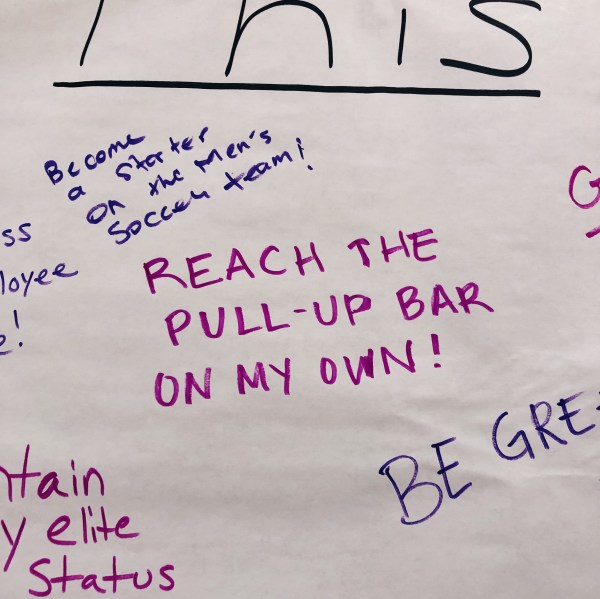 This
Become
a starter
on the Men's
Soccer team!
ss
loyee
e!
REACH THE
PULL-UP BAR
ON MY OWN!
G
BE GRE
tain
y elite
Status